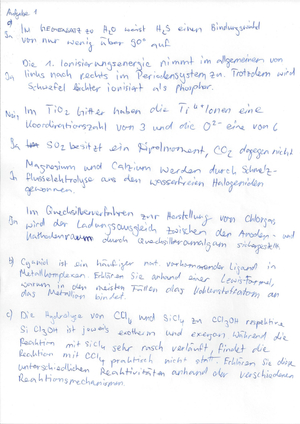 Aufgabe 1
a)
Ja Im Gegensatz zu H2O weist H2S einen Bindungswinkel
von nur wenig über 90° auf.
Die 1. Ionisierungsenergie nimmt im allgemeinen von
Ja links nach rechts im Periodensystem zu. Trotzdem wird
Schwefel leichter ionisiert als Phosphor.
Nein Im TiO2 Gitter haben die Ti4+ Ionen eine
Koordinationszahl von 3 und die O2- eine von 6
Ja SO2 besitzt ein Dipolmoment, CO2 dagegen nicht
Magnesium und Calzium werden durch Schmelz-
Ja flusselektrolyse aus den wasserfreien Halogeniden
gewonnen.
Im Quecksilberverfahren zur Herstellung von Chlorgas
Ja wird der Ladungsausgleich zwischen den Anoden- und
Kathodenraum durch Quecksilberamalgam sichergestellt
b) Cyanid ist ein häufiger vorkommender Ligand in
Metallkomplexen. Erklären Sie anhand einer Lewisformel,
warum in den meisten Fällen das Kohlenstoffatom an
das Metallion bindet.
c) Die Hydrolyse von CCl4 und SiCl4 zu
ist jeweils exotherm und exergon. Während die
Reaktion mit SiCl4 sehr rasch verläuft, findet die
Reaktion mit CCl4 praktisch nicht statt. Erklären Sie diese
unterschiedlichen Reaktivitäten anhand der verschiedenen
Reaktionsmechanismen